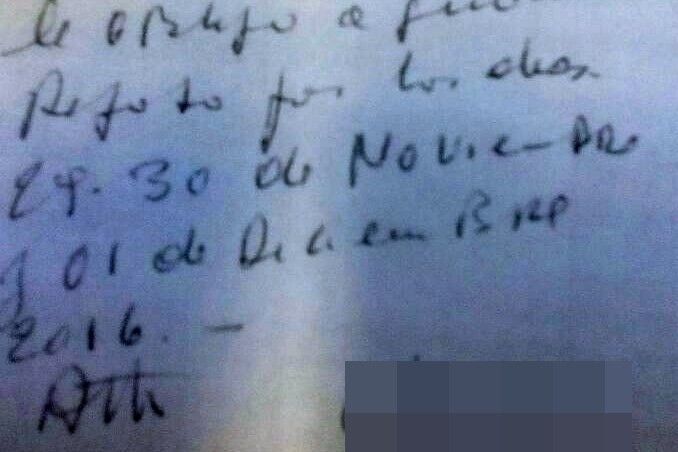 le obligo a
Reposo por los días
29. 30 de Noviembre
y 01 de Diciembre
2016. -
Att